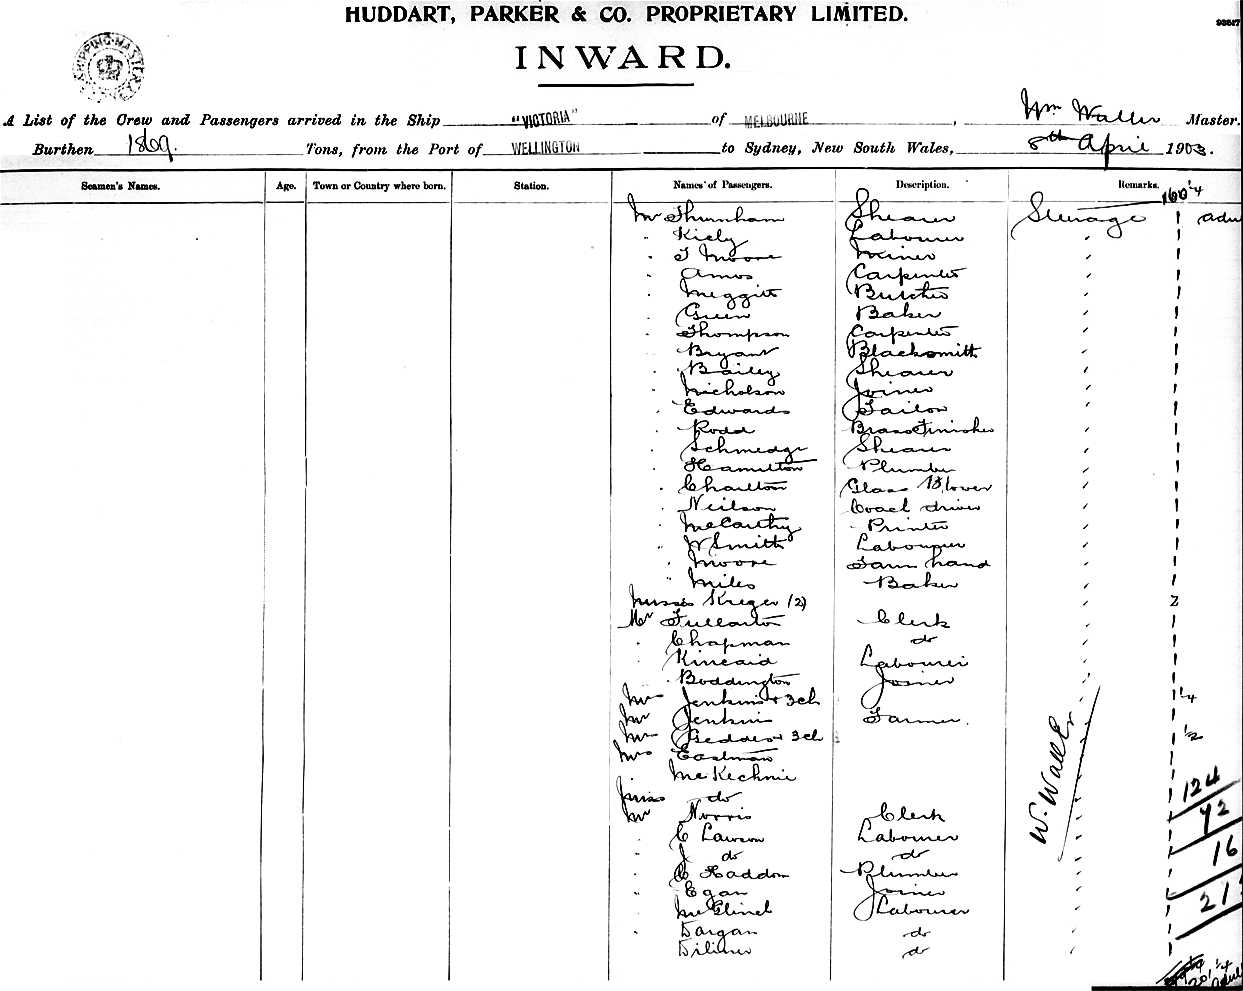 HUDDART, PARKER & CO. PROPRIETARY LIMITED.
93517
INWARD.
SHIPPING MASTER
A List of the Crew and Passengers arrived in the Ship "VICTORIA" of MELBOURNE, Wm Waller Master.
Burthen 1869. Tons, from the Port of WELLINGTON to Sydney, New South Wales, 8th April 1903.
Seamen's Names. Age. Town or Country where born. Station. Names of Passengers. Description. Remarks.
160 1/4
Mr Thurnham Shearer Steerage 1 adu
" Kiely Labourer " 1
" T Moore Miner " 1
" Amos Carpenter " 1
" Meggitt Butcher " 1
" Green Baker " 1
" Thompson Carpenter " 1
" Bryant Blacksmith " 1
" Bailey Shearer " 1
" Nicholson Joiner " 1
" Edwards Tailor " 1
" Rodd Brass Finisher " 1
" Schmedge Shearer " 1
" Hamilton Plumber " 1
" Charlton Glass Blower " 1
" Neilson Coach driver " 1
" McCarthy Printer " 1
" W Smith Labourer " 1
" Moore Farm hand " 1
" Miles Baker " 1
Misses Kreger (2) " 2
Mr Fullarton Clerk " 1
" Chapman do " 1
" Kincaid Labourer " 1
" Boddington Joiner " 1
Mrs Jenkins + 3 ch " 1 1/4
Mr Jenkins Farmer. " 1
Mrs Geddes + 3 ch " 1 1/2
Mrs Eastman " 1
" McKechnie " 1
Miss do " 1
Mr Norris Clerk " 1
" C Lawson Labourer " 1
" J do do " 1
" C Haddon Plumber " 1
" Egan Joiner " 1
" Labourer " 1
" Dargan do " 1
" do " 1
W. Waller
124
42
16
21
20 1/4 adul